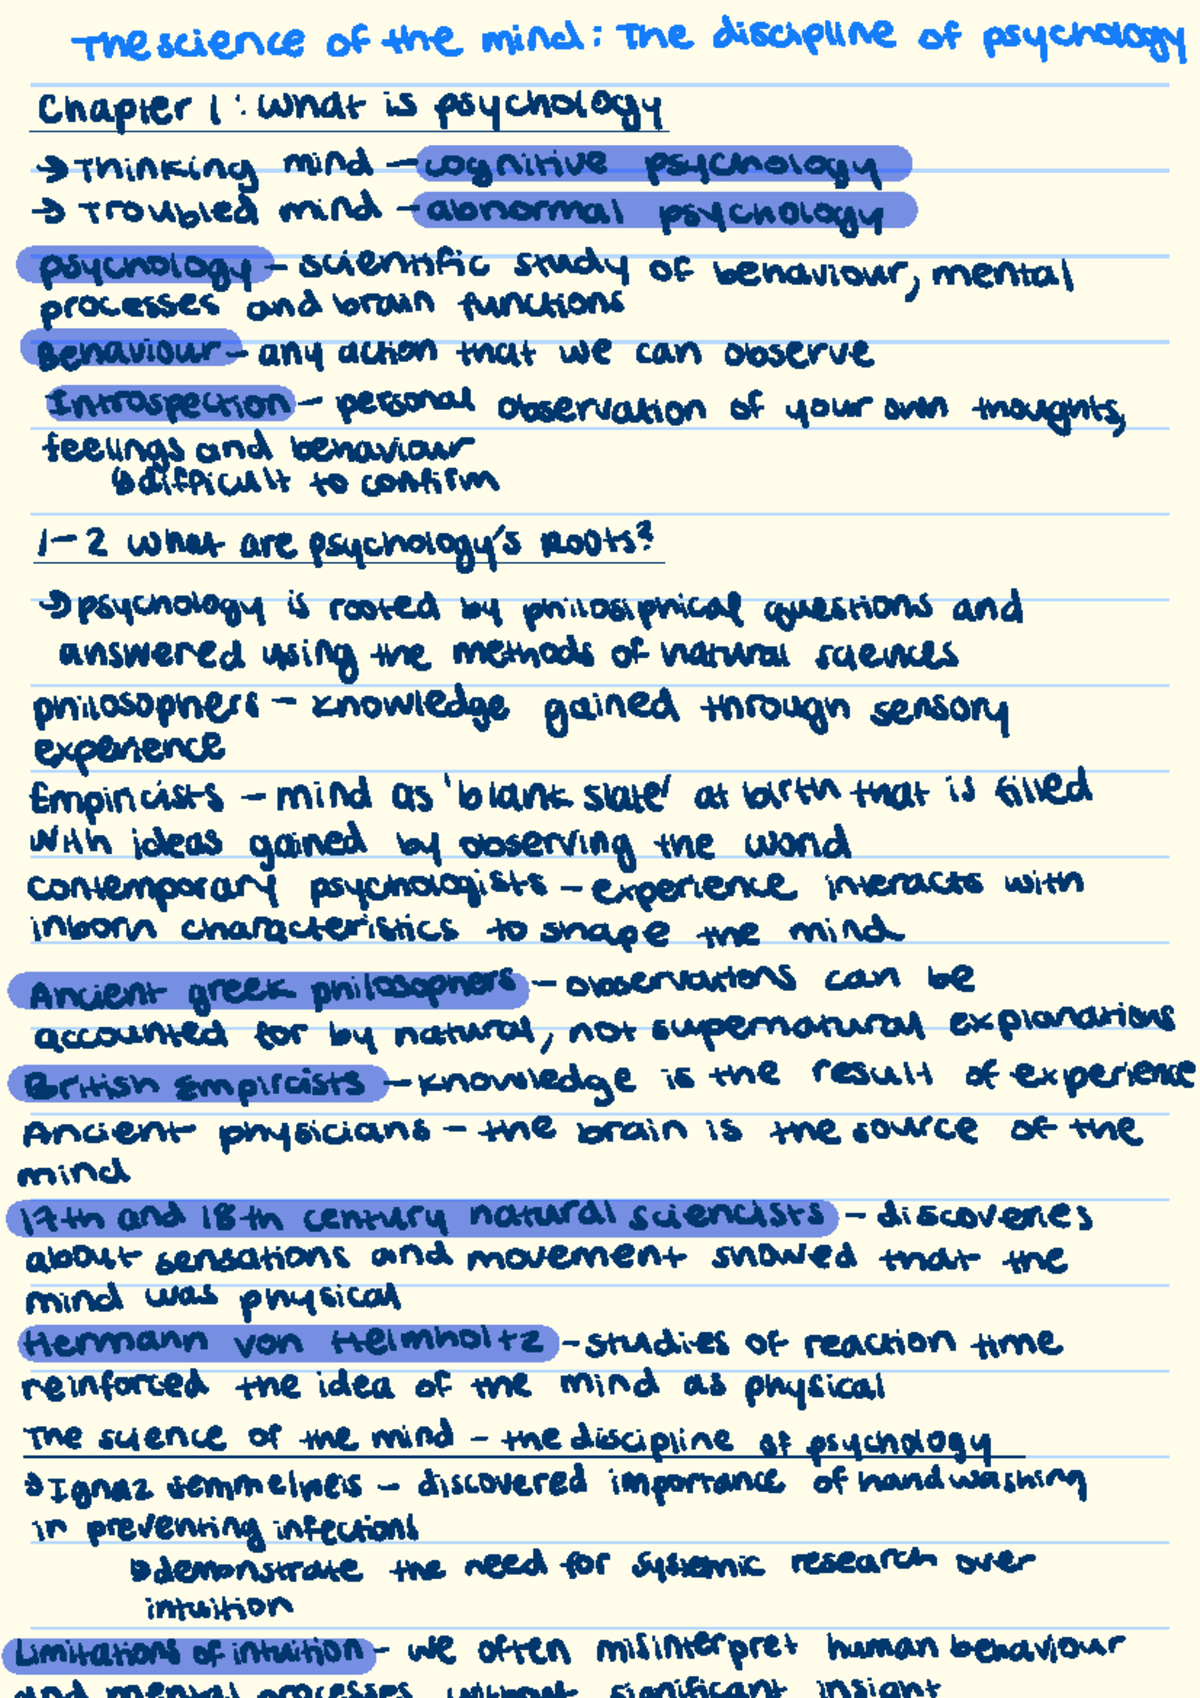 The science of the mind: The discipline of psychology
Chapter 1: What is psychology
→ Thinking mind – cognitive psychology
→ Troubled mind – abnormal psychology
psychology – scientific study of behaviour, mental
processes and brain functions
Behaviour – any action that we can observe
Introspection – personal observation of your own thoughts,
feelings and behaviour
↳ difficult to confirm
1-2 what are psychology's roots?
→ psychology is rooted by philosiphical questions and
answered using the methods of natural sciences
philosophers – knowledge gained through sensory
experience
Empiricists – mind as 'blank slate' at birth that is filled
with ideas gained by observing the world
contemporary psychologists – experience interacts with
inborn characteristics to shape the mind
Ancient greek philosophers – observations can be
accounted for by natural, not supernatural explanations
British Empircists – knowledge is the result of experience
Ancient physicians – the brain is the source of the
mind
17th and 18th century natural sciencists – discoveries
about sensations and movement showed that the
mind was physical
Hermann von Helmholtz – studies of reaction time
reinforced the idea of the mind as physical
The science of the mind – the discipline of psychology
→ Ignaz Semmelneis – discovered importance of handwashing
in preventing infections
↳ demonstrate the need for systemic research over
intuition
Limitations of intuition – we often misinterpret human behaviour
and mental processes without significant insight